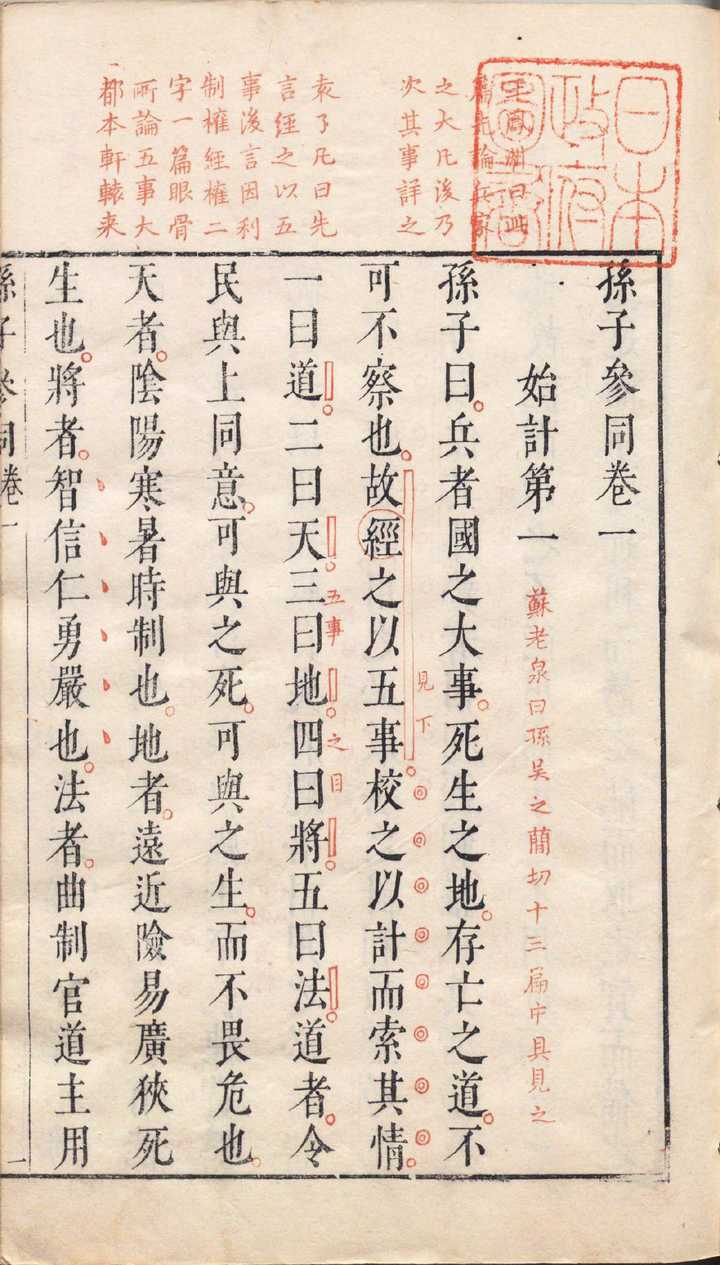 孫子參同卷一
始計第一
蘇老泉曰孫吳之蕳切十三篇中具見之
孫子曰兵者國之大事死生之地存亡之道不
可不察也故經之以五事校之以計而索其情
見下
一曰道二曰天三曰地四曰將五曰法道者令
五事之目
民與上同意可與之死可與之生而不畏危也
天者陰陽寒暑時制也地者遠近險易廣狹死
生也將者智信仁勇嚴也法者曲制官道主用
孫子參同卷一
一
王鳳洲曰此
篇先論兵家
之大凡後乃
次其事詳之
袁了凡曰先
言經之以五
事後言因利
制權經權二
字一篇眼骨
所論五事大
都本軒轅來
日本
政府
圖書